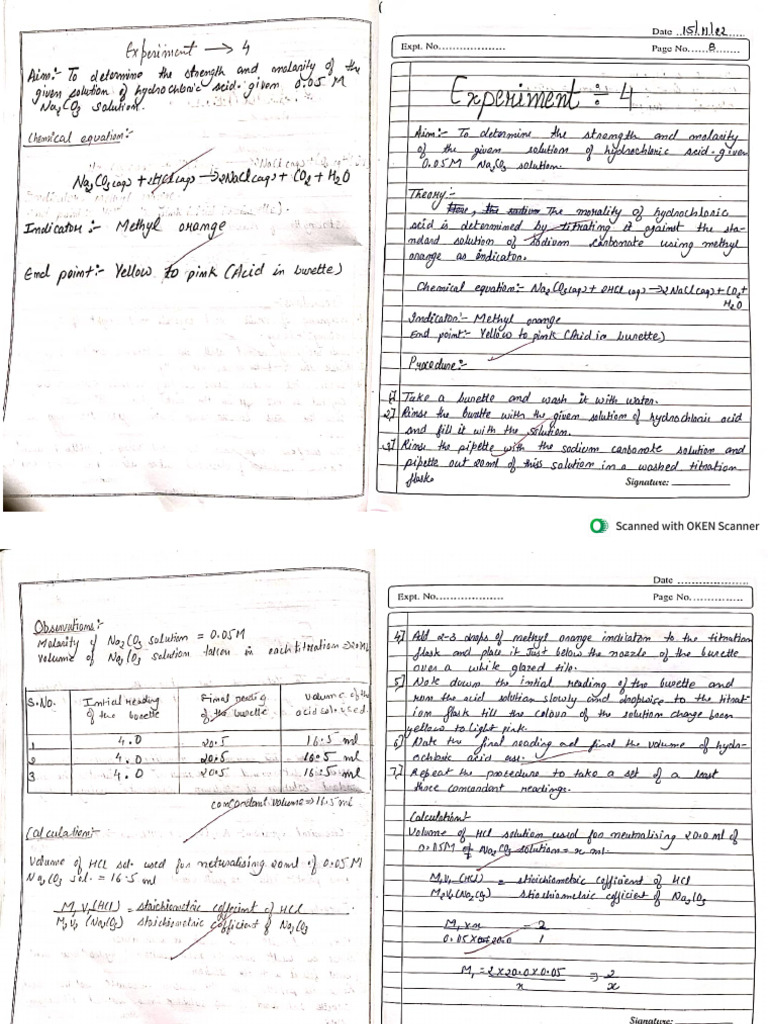 Experiment → 4
Aim:- To determine the strength and molarity of the
given solution of hydrochloric acid. given 0.05 M
Na2CO3 solution.
Chemical equation:-
Na2CO3(aq) + 2HCl(aq) → 2NaCl(aq) + CO2 + H2O
Indicator :- Methyl orange
End point:- Yellow to pink (Acid in burette)
Date 15/11/22
Expt. No....................
Page No.....8........
Experiment ÷ 4
Aim:- To determine the strength and molarity
of the given solution of hydrochloric acid. given
0.05 M Na2CO3 solution.
Theory:-
The morality of hydrochloric
acid is determined by titrating it against the sta-
ndard solution of sodium carbonate using methyl
orange as indicator.
Chemical equation:- Na2CO3(aq) + 2HCl (aq) → 2NaCl(aq) + CO2+
H2O
Indicator:- Methyl orange
End point:- Yellow to pink (Acid in burette)
Procedure:-
1] Take a burette and wash it with water.
2] Rinse the burette with the given solution of hydrochloric acid
and fill it with the solution.
3] Rinse the pipette with the sodium carbonate solution and
pipette out 20ml of this solution in a washed titration
flask.
Signature:
Scanned with OKEN Scanner
Observations:-
Molarity of Na2CO3 solution = 0.05M
Volume of Na2CO3 solution taken in each titration → 20 ML
S.No. Initial reading of the burette Final reading of the burette Volume of the acid sol. used.
1 4.0 20.5 16.5 ml
2 4.0 20.5 16.5 ml
3 4.0 20.5 16.5 ml
concordant volume ⇒ 16.5 ml
Calculation:-
Volume of HCl sol. used for neturalising 20ml of 0.05M
Na2CO3 sol. = 16.5 ml
M1V1 (HCl) = stoichiometric cofficient of HCl
M2V2 (Na2CO3) stoichiometric cofficient of Na2CO3
Date ....................
Expt. No....................
Page No...............
4] Add 2-3 drops of methyl orange indicator to the titration
flask and place it Just below the nozzle of the burette
over a while glazed tile.
5] Note down the initial reading of the burette and
run the acid solution slowly and dropwise to the titrat-
ion flask till the colour of the solution change been
yellow to light pink.
6] Note the final reading and find the volume of hydr-
ochloric acid use.
7] Repeat the procedure to take a set of a least
three concordant readings.
Calculation:-
Volume of HCl solution used for neutralising 20.0 ml of
0.05M of Na2CO3 solution = x ml.
M1V1 (HCl) = stoichiometric cofficient of HCl
M2V2 (Na2CO3) stoichiometric cofficient of Na2CO3
M1 x x = 2
0.05 x 20.0 1
M1 = 2 X 20.0 X 0.05 ⇒ 2
x x
Signature: